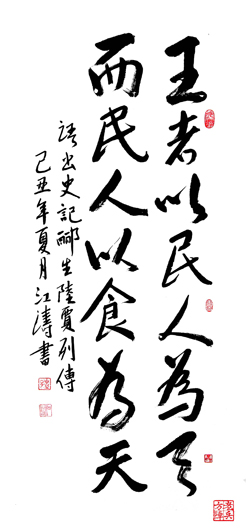 王者以民人為天
而民人以食為天
語出史記酈生陸賈列傳
己丑年夏月江濤書